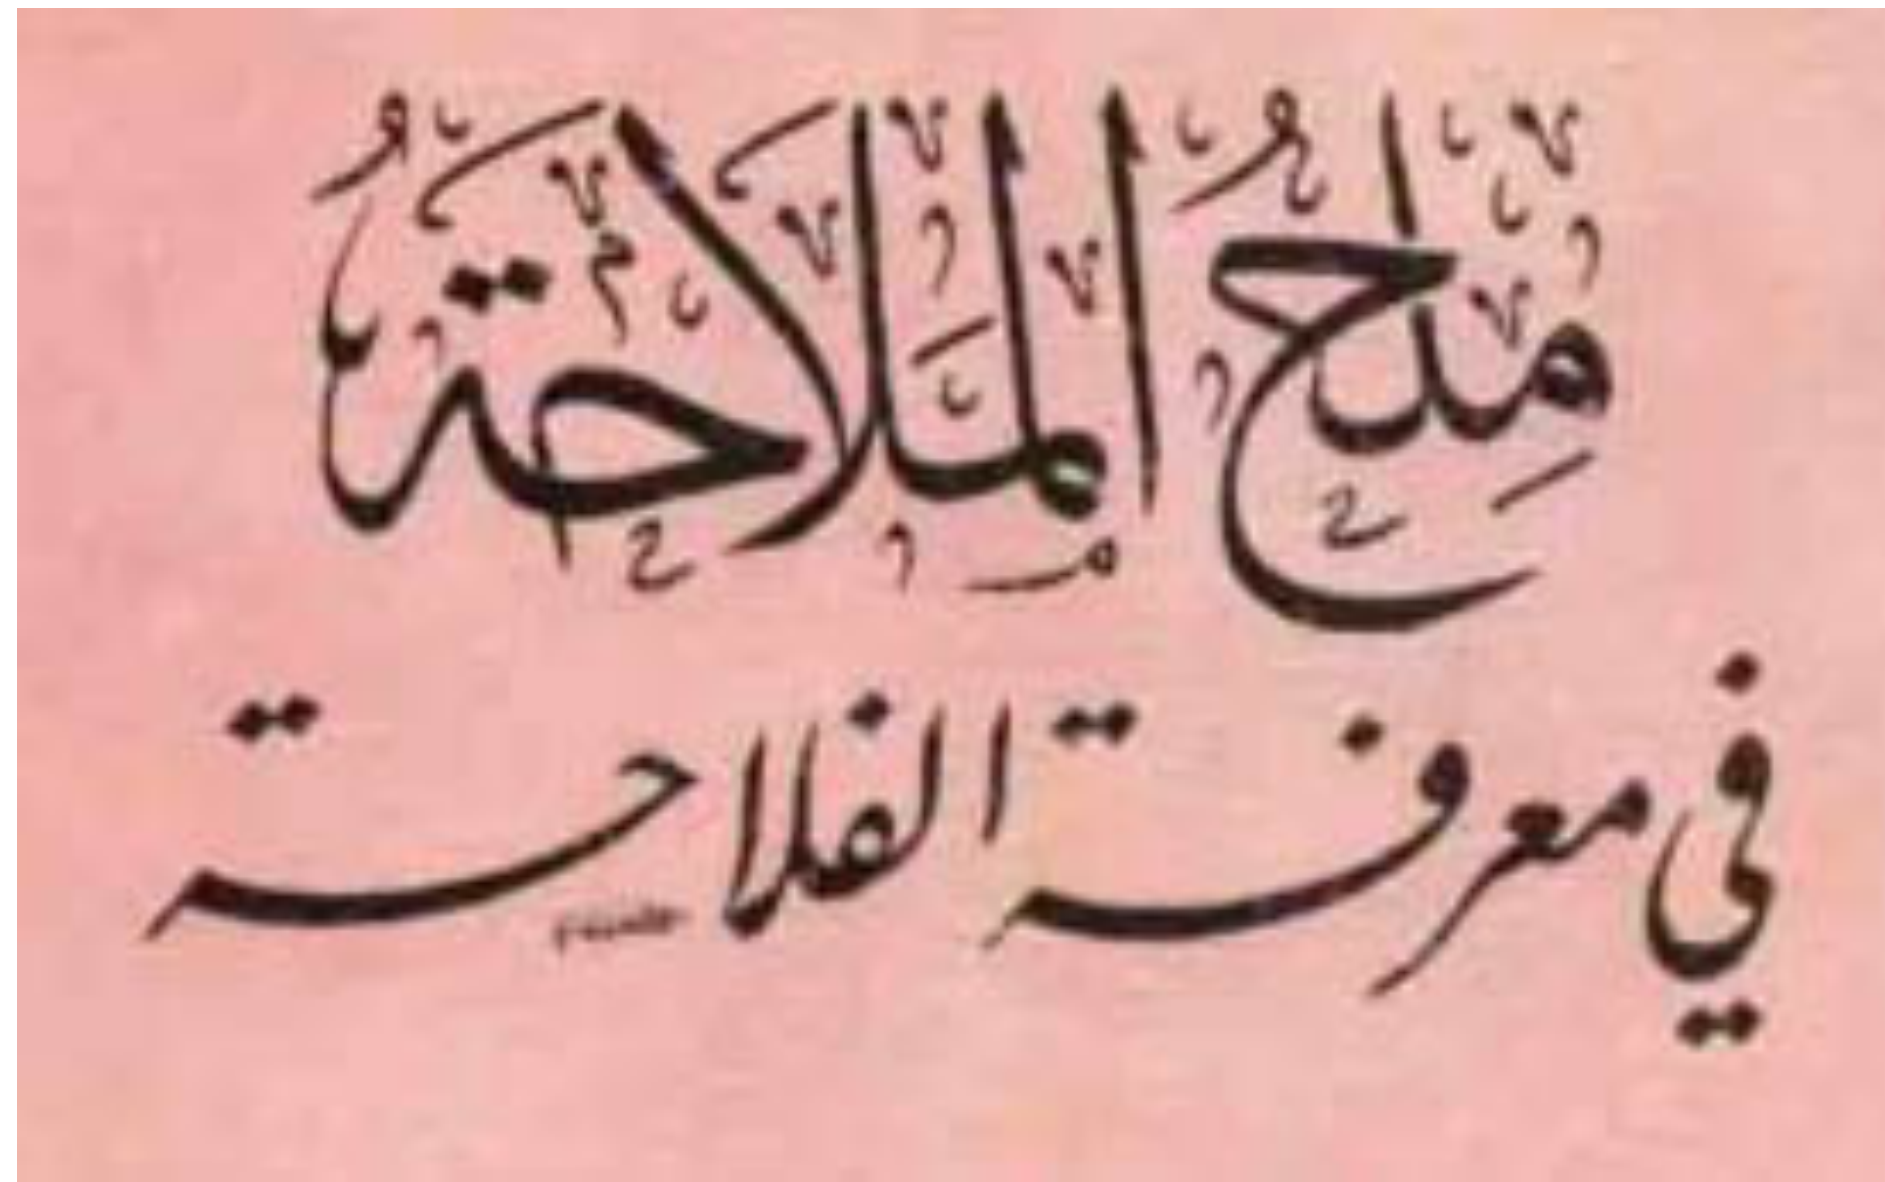 مِلحُ المَلَاحَةُ
في معرفة الفلاحة